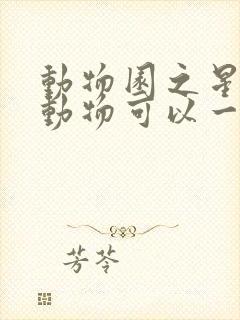 動物園之星
動物可以一
芳苓